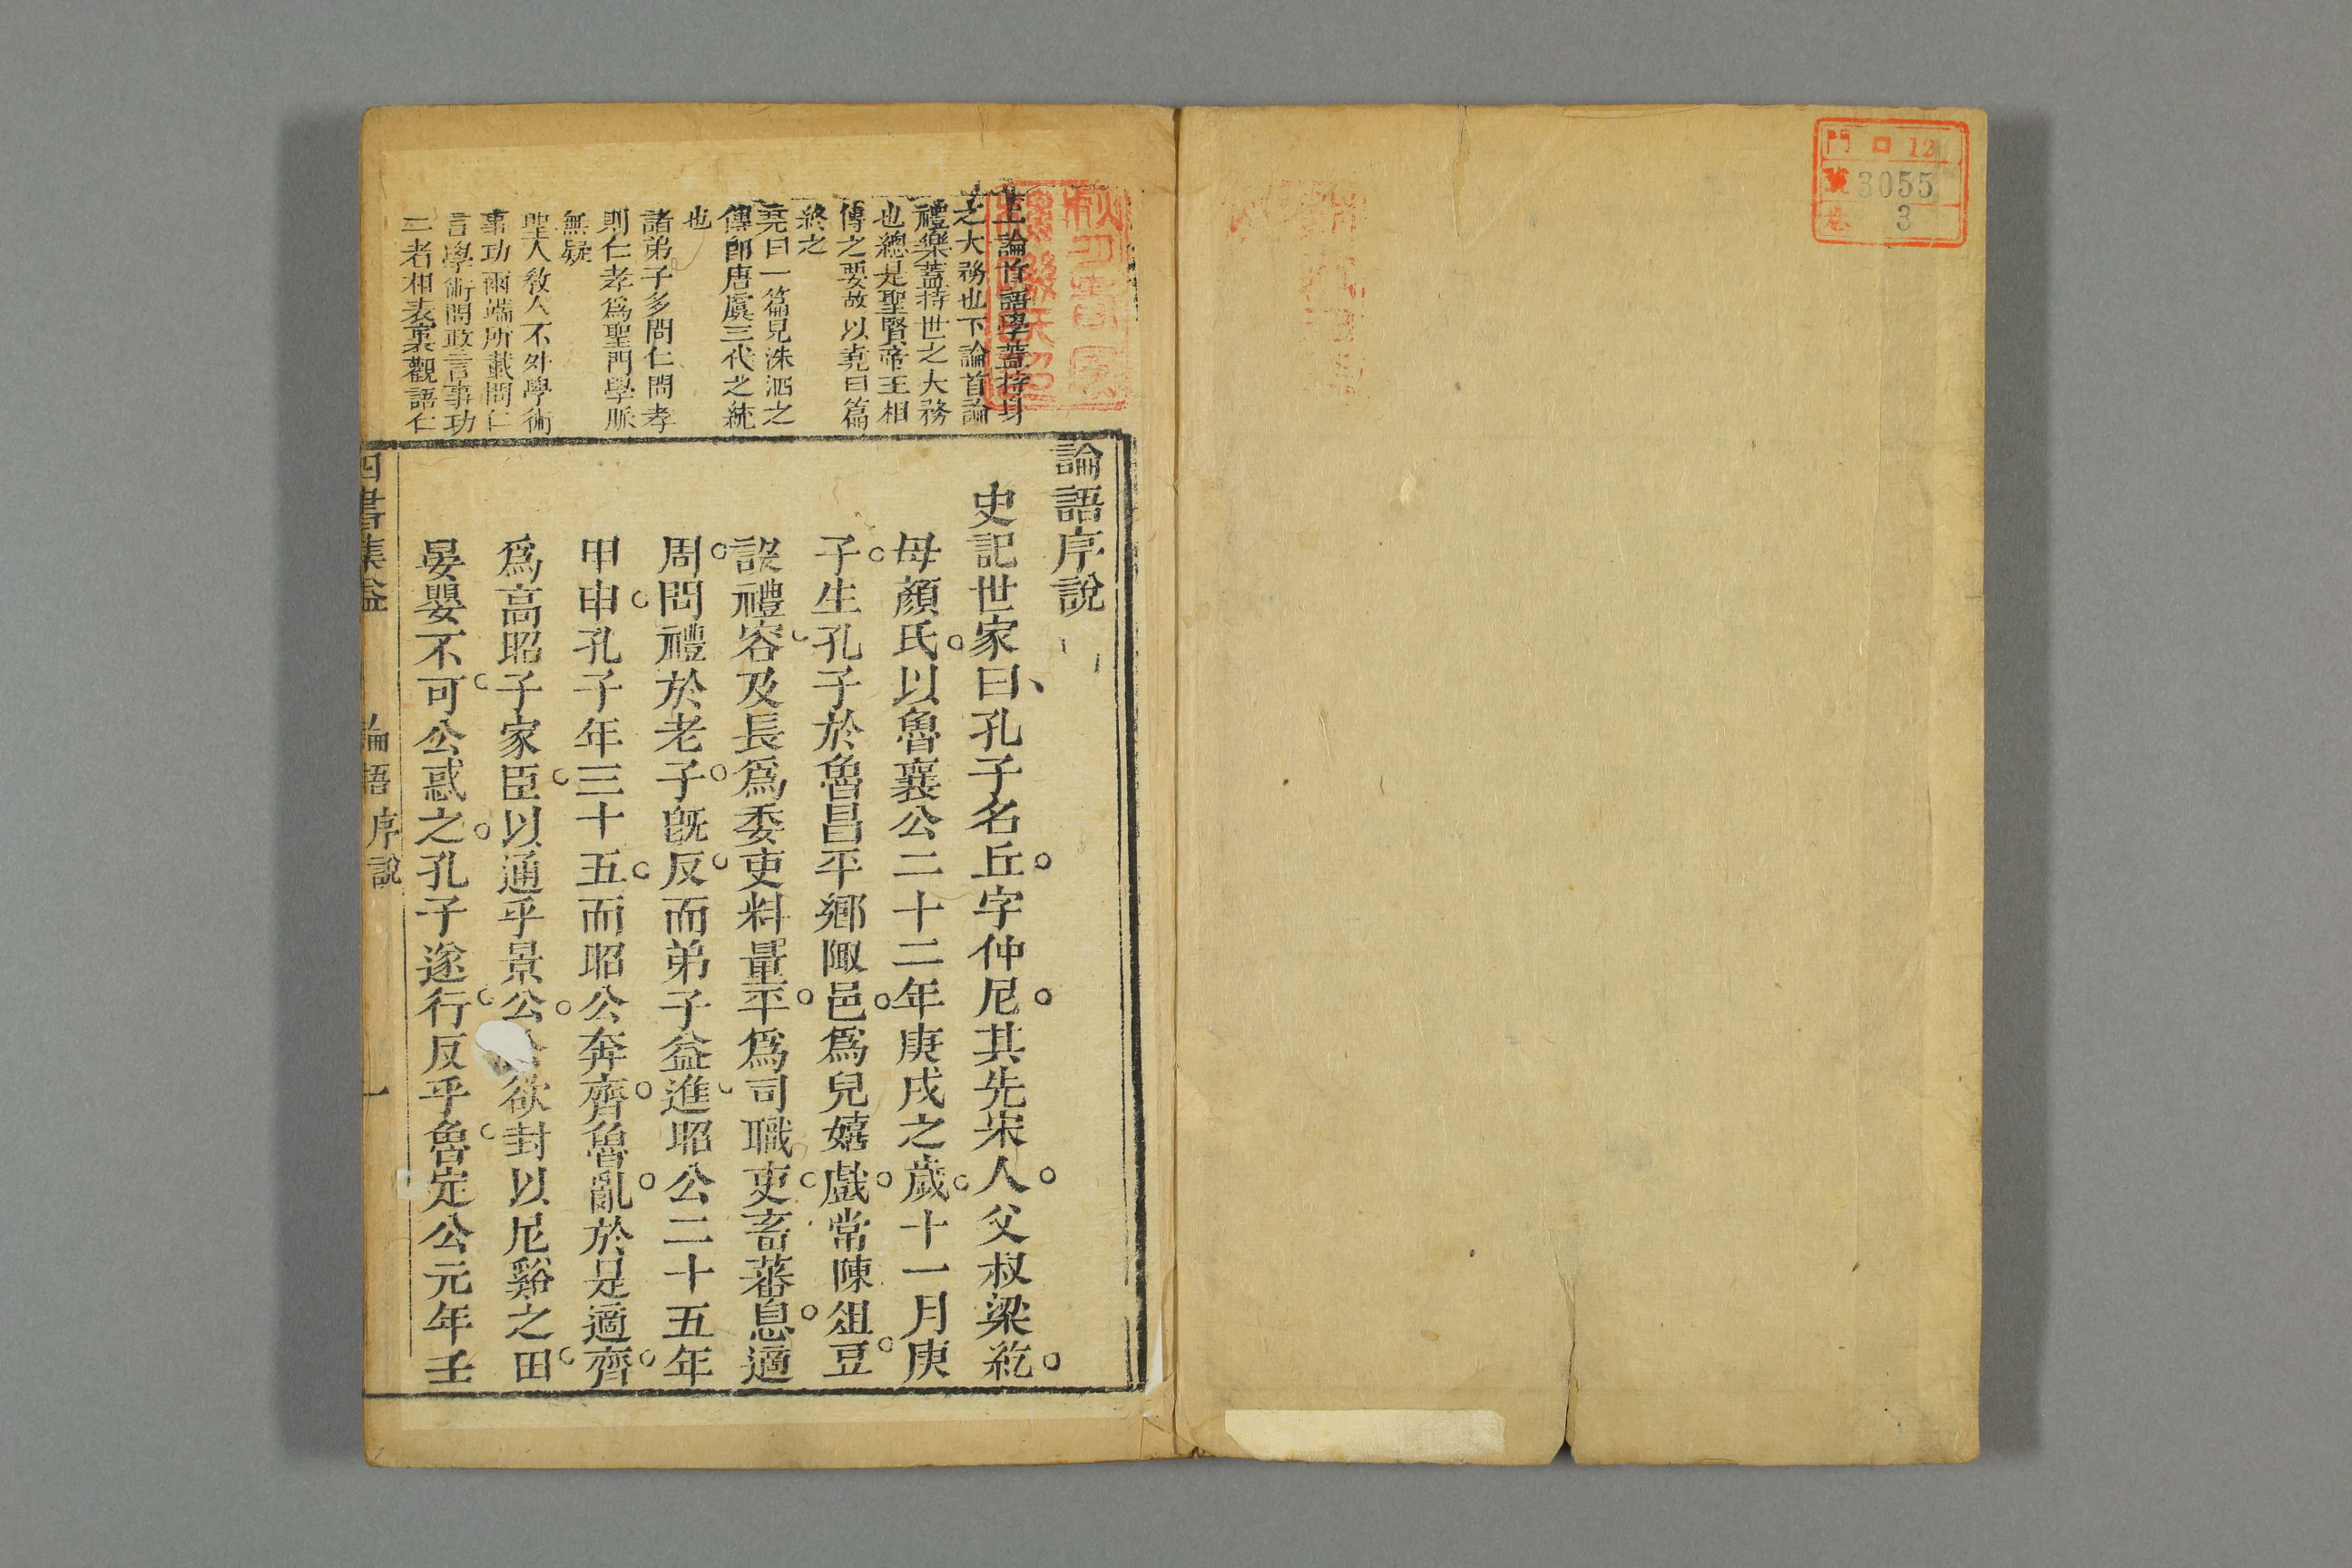 門 口 12
號 3055
卷 3
上論首語學蓋持身
之大務也下論首論
禮樂蓋持世之大務
也總是聖賢帝王相
傳之要故以堯曰篇
終之
堯曰一篇見洙泗之
傳卽唐虞三代之統
也
諸弟子多問仁問孝
則仁孝爲聖門學脈
無疑
聖人教人不外學術
事功兩端所載問仁
言學術問政言事功
二者相表裏觀語仁
論語序說
史記世家曰、孔子名丘。字仲尼。其先宋人。父叔梁紇。
母顏氏。以魯襄公二十二年庚戌之歲。十一月庚
子。生孔子於魯昌平鄉陬邑。爲兒嬉戲。常陳俎豆。
設禮容。及長爲委吏料量平。爲司職吏。畜蕃息。適
周。問禮於老子。旣反。而弟子益進。昭公二十五年
甲申。孔子年三十五。而昭公奔齊。魯亂。於是適齊。
爲高昭子家臣。以通乎景公。公欲封以尼谿之田。
晏嬰不可。公惑之。孔子遂行。反乎魯。定公元年壬
四書集益 論語序說 一